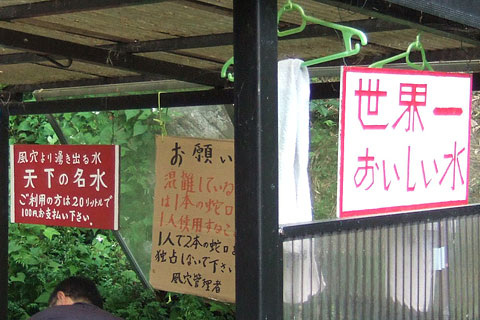 風穴より湧き出る水
天下の名水
ご利用の方は20リットルで
100円お支払い下さい。
お願い
混雑している
は1本の蛇口
1人使用する
1人で2本の蛇口
独占しないで下さい
風穴管理者
世界一
おいしい水